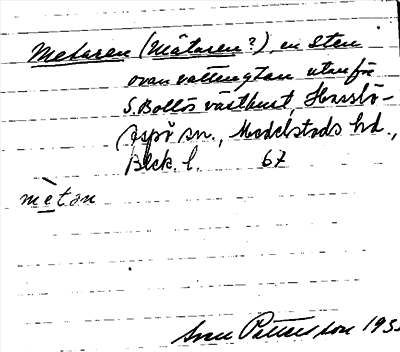 Metaren (Mätaren?), en sten
ovan vattenytan utanför
S. Bollös västkust, Hasslö-
Aspö sn., Medelstads hd.,
Blek. l. 67
mètan
Sven Pettersson 193